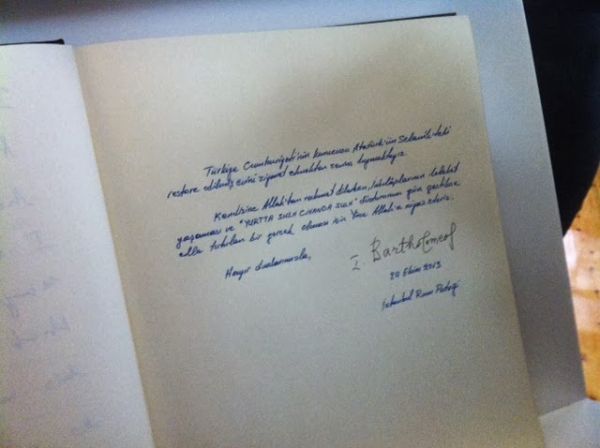 Türkiye Cumhuriyeti'nin kurucusu Atatürk'ün Selanik'teki
restore edilmiş evini ziyaret etmekten onur duymaktayız.
Kendisine Allah'tan rahmet dilerken, inkılaplarının
yaşaması ve "YURTTA SULH CİHANDA SULH" gün geçtikçe
bir gerçek olması için Yüce Allah'a niyaz ederiz.
Hayır dualarımızla,
I. Bartholomeos
20 Ekim 2013
İstanbul Rum Patriği